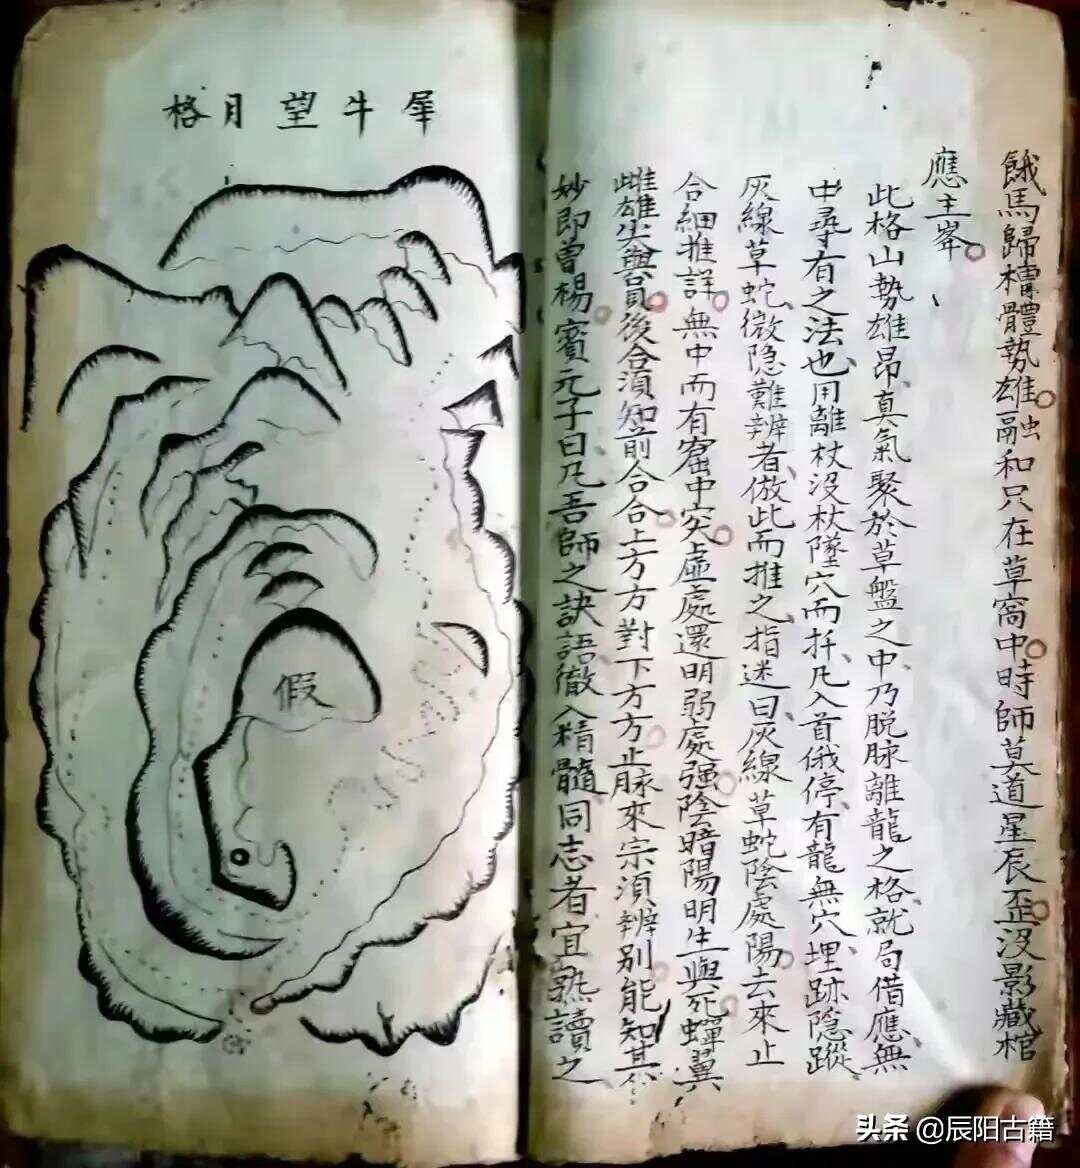 餓馬歸槽體勢雄融和只在草窩中時師莫道星辰歪沒影藏棺
應主峯
此格山勢雄昂真氣聚於草盤之中乃脱脉離龍之格就局借應無
中尋有之法也用離杖沒杖墜穴而扦凡入首俄停有龍無穴埋跡隱蹤
灰線草蛇微隐難辨者倣此而推之指迷曰灰線草蛇陰處陽去來止
合細推詳無中而有窩中突虛處還明弱處强陰暗陽明生與死蟬翼
雌雄尖與員後合須知前合合上方方對下方方止脉來宗須辨别能知其
妙即曾楊賓元子曰凡吾師之訣語徹入精髓同志者宜熟讀之
犀牛望月格
假
头条@辰阳古籍